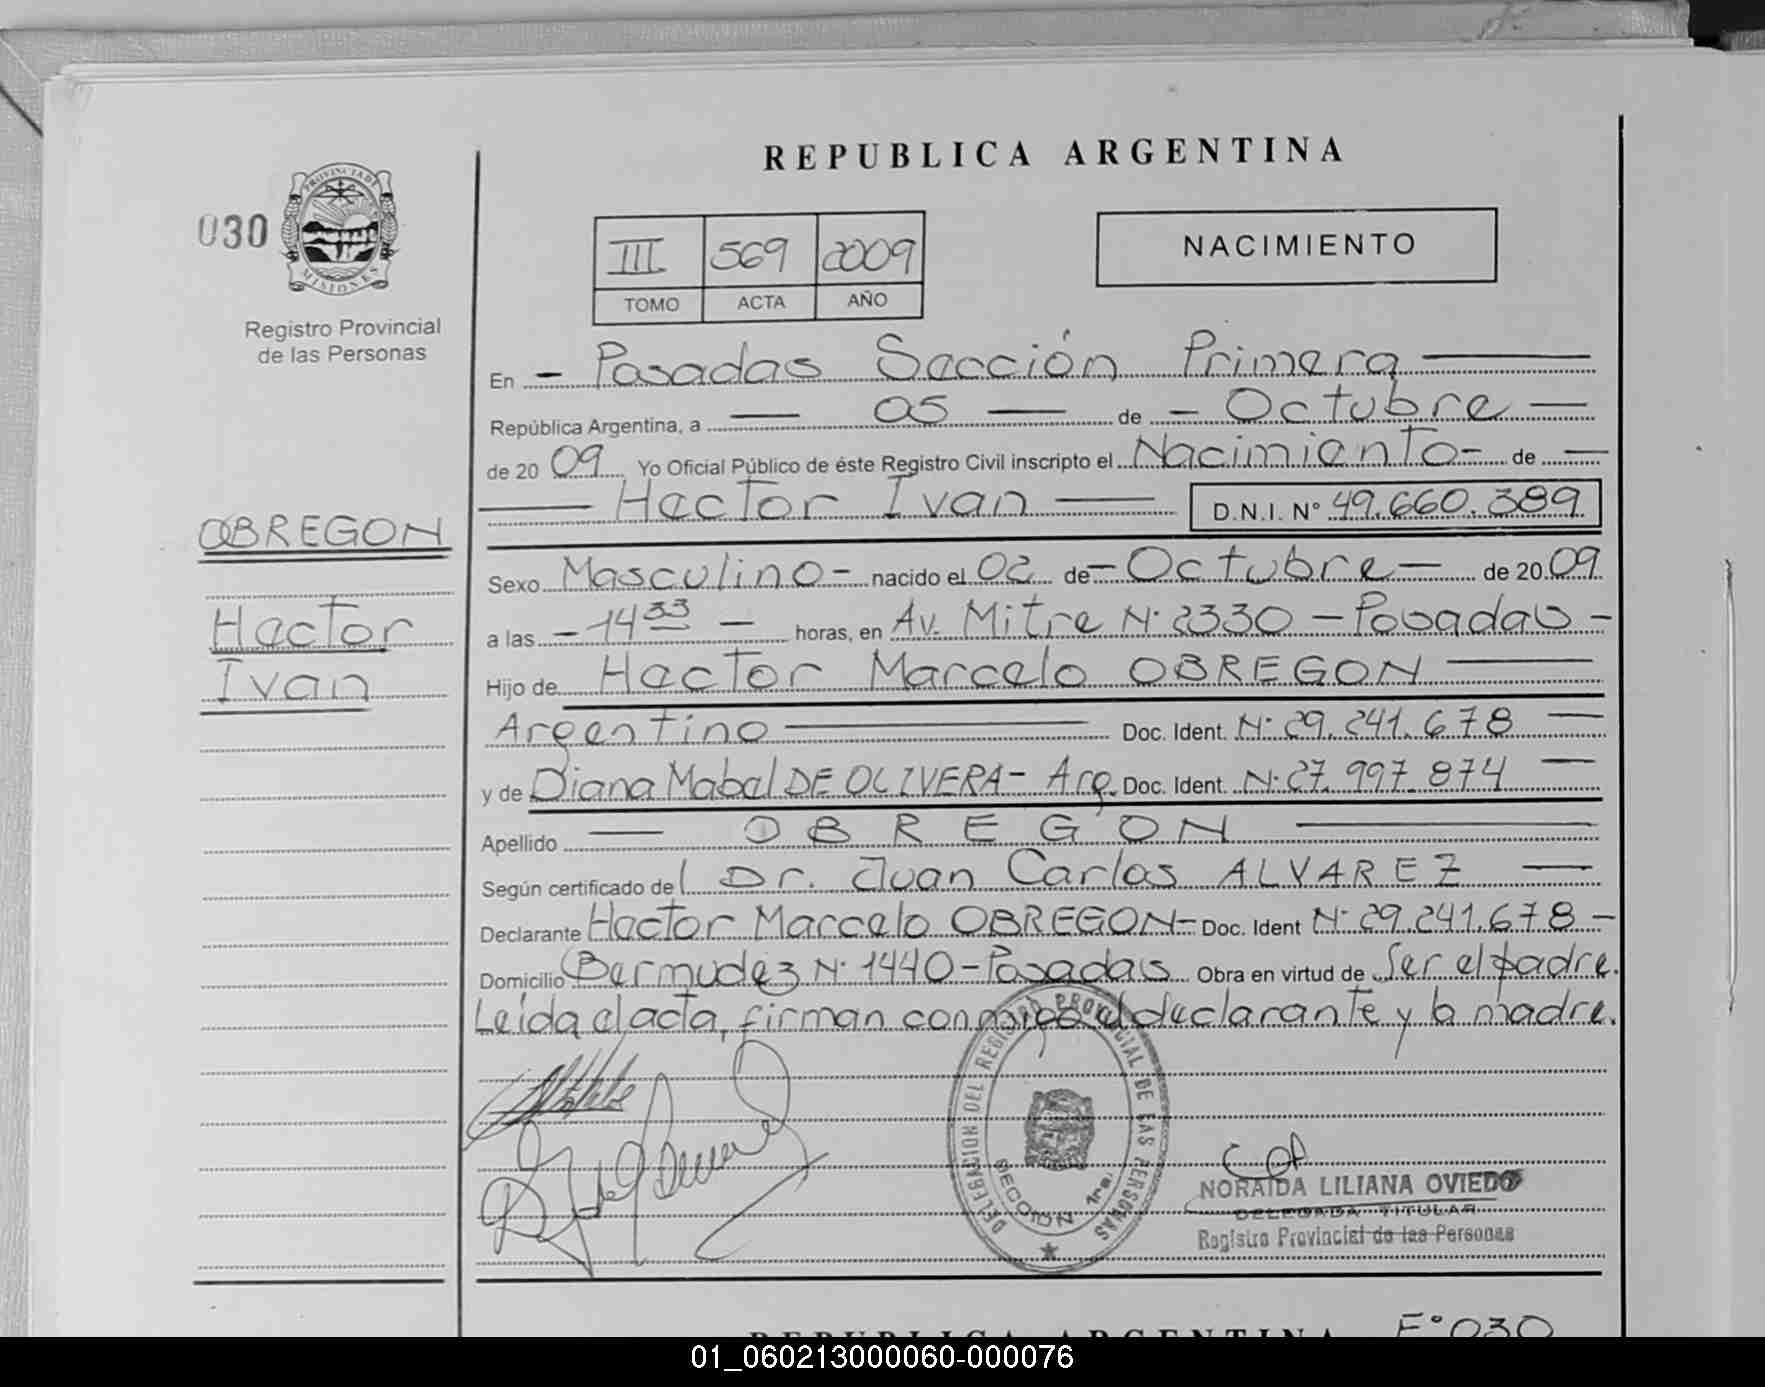 REPUBLICA ARGENTINA
030
PROVINCIA DE
MISIONES
Registro Provincial
de las Personas
III 569 2009
TOMO ACTA AÑO
NACIMIENTO
En - Posadas Sección Primera
República Argentina, a 05 de - Octubre -
de 20 09 Yo Oficial Público de éste Registro Civil inscripto el Nacimiento - de -
Hector Ivan D.N.I. N° 49.660.389
OBREGON
Hector
Ivan
Sexo Masculino - nacido el 02 de - Octubre - de 20 09
a las - 14 33 - horas, en Av. Mitre N° 2330 - Posadas -
Hijo de Hector Marcelo OBREGON
Argentino Doc. Ident. N° 29.241.678
y de Diana Mabel DE OLIVERA - Arg. Doc. Ident. N° 27.997.874
Apellido OBREGON
Según certificado del Dr. Juan Carlos ALVAREZ
Declarante Hector Marcelo OBREGON - Doc. Ident N° 29.241.678 -
Domicilio Bermudez N° 1440 - Posadas Obra en virtud de Ser el padre.
Leída el acta, firman conmigo el declarante y la madre.
DELEGACION DEL REGISTRO PROVINCIAL DE LAS PERSONAS
SECCION 1ra.
NORAIDA LILIANA OVIEDO
DELEGADA TITULAR
Registro Provincial de las Personas
REPUBLICA ARGENTINA F° 030
01_060213000060-000076